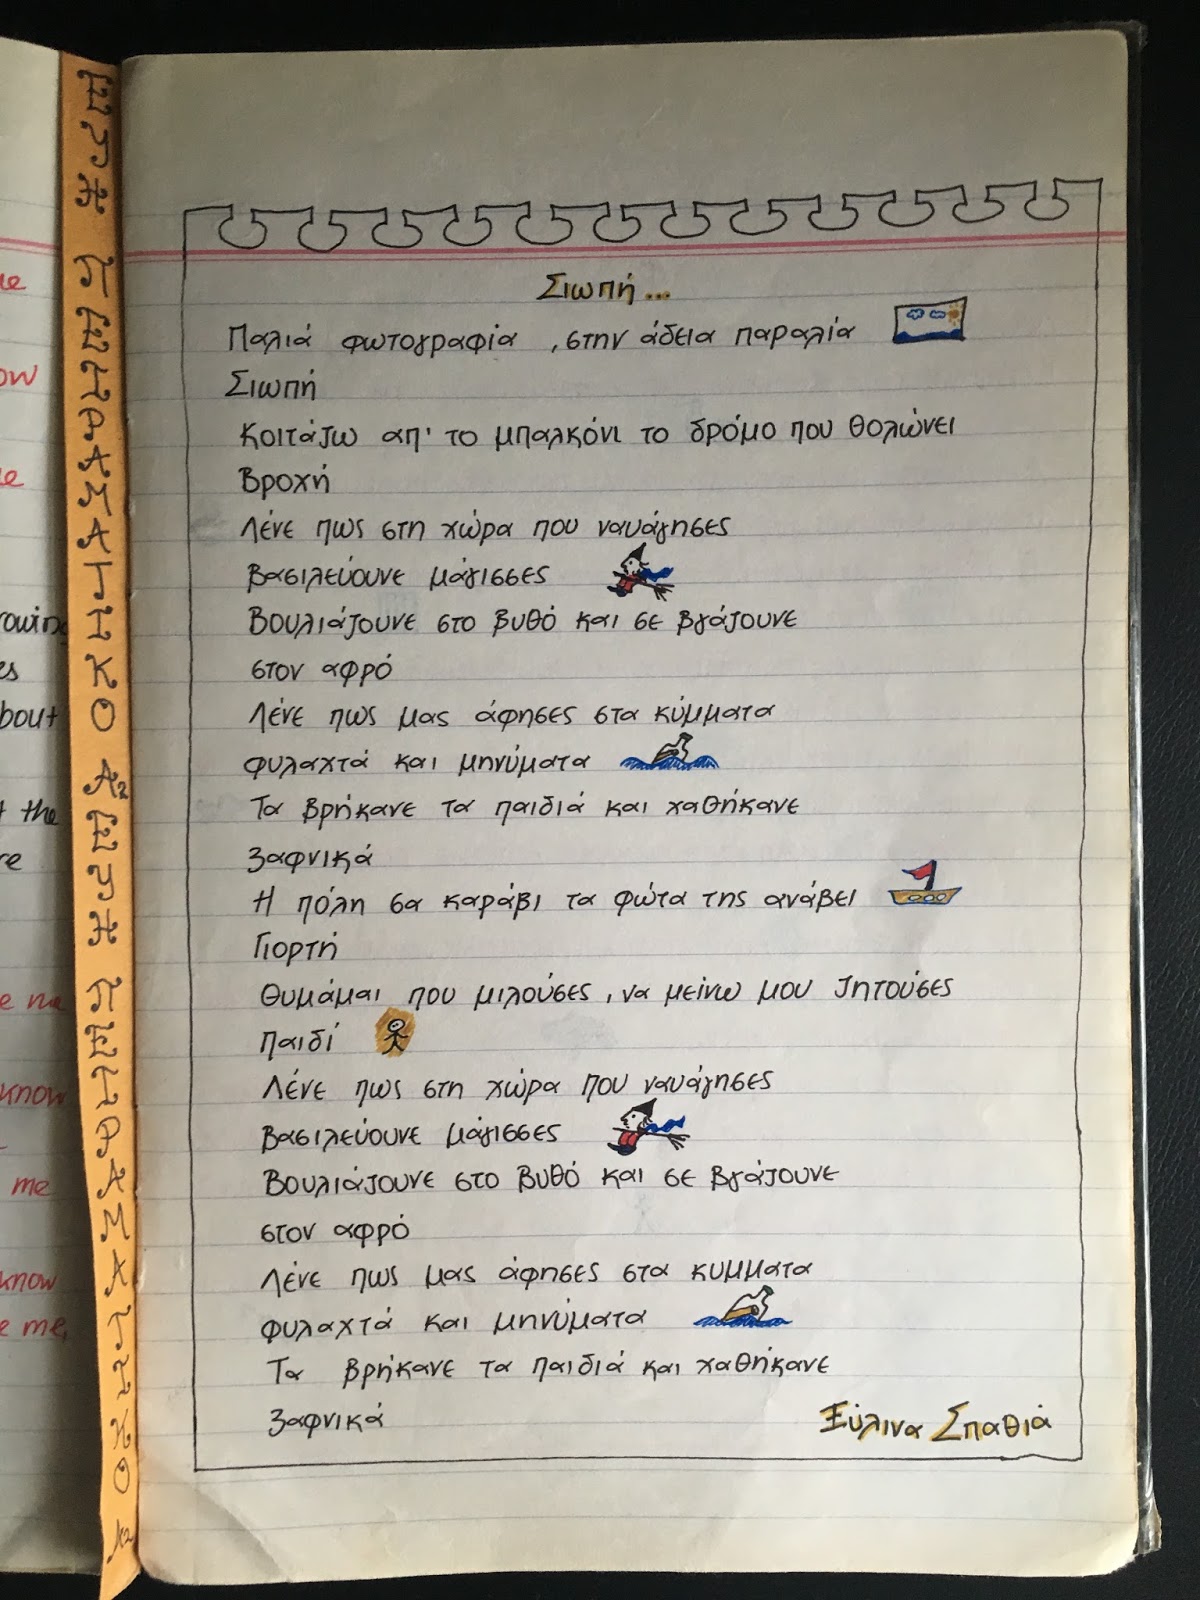 know
bout
the
know
me
know
me,
ΕΥΗ ΠΕΙΡΑΜΑΤΙΚΟ Α2 ΕΥΗ ΠΕΙΡΑΜΑΤΙΚΟ Α2
Σιωπή...
Παλιά φωτογραφία , στην άδεια παραλία
Σιωπή
Κοιτάζω απ' το μπαλκόνι το δρόμο που θολώνει
Βροχή
Λένε πως στη χώρα που ναυάγησες
βασιλεύουνε μάγισσες
Βουλιάζουνε στο βυθό και σε βγάζουνε
στον αφρό
Λένε πως μας άφησες στα κύμματα
φυλαχτά και μηνύματα
Τα βρήκανε τα παιδιά και χαθήκανε
ξαφνικά
Η πόλη σα καράβι τα φώτα της ανάβει
Γιορτή
Θυμάμαι που μιλούσες , να μείνω μου ζητούσες
παιδί
Λένε πως στη χώρα που ναυάγησες
βασιλεύουνε μάγισσες
Βουλιάζουνε στο βυθό και σε βγάζουνε
στον αφρό
Λένε πως μας άφησες στα κυμματα
φυλαχτά και μηνύματα
Τα βρήκανε τα παιδιά και χαθήκανε
ξαφνικά
Ξύλινα Σπαθιά